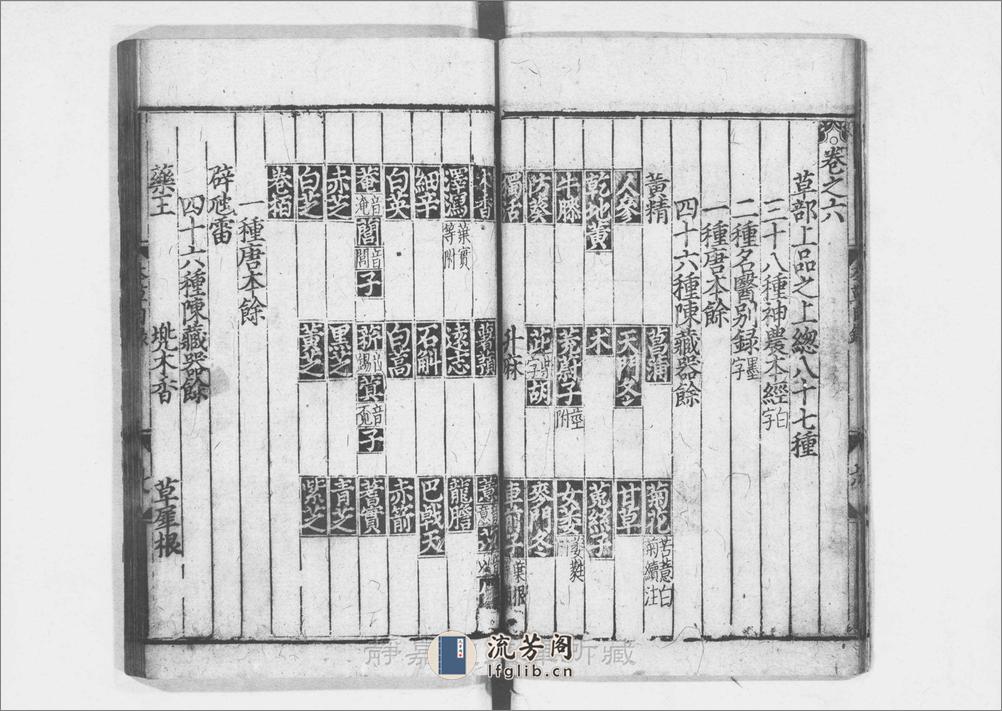 卷之六
草部上品之上總八十七種
三十八種神農本經白字
二種名醫別録墨字
一種唐本餘
四十六種陳藏器餘
黃精 菖蒲 菊花苦薏白菊續注
人參 天門冬 甘草
乾地黃 术 菟絲子
牛膝 茺蔚子莖附 女萎萎蕤附
防葵 茈柴字胡 麥門冬
獨活 升麻 車前子葉根
木香 薯蕷 薏苡人
澤瀉葉實等附 遠志 龍膽
細辛 石斛 巴戟天
白英 白蒿 赤箭
菴音淹䕡音閭子 菥音錫蓂音覓子 蓍實
赤芝 黑芝 青芝
白芝 黃芝 紫芝
卷栢
一種唐本餘
辟虺雷
四十六種陳藏器餘
藥王 兠木香 草犀根
静嘉 所藏
流芳阁
lfglib.cn